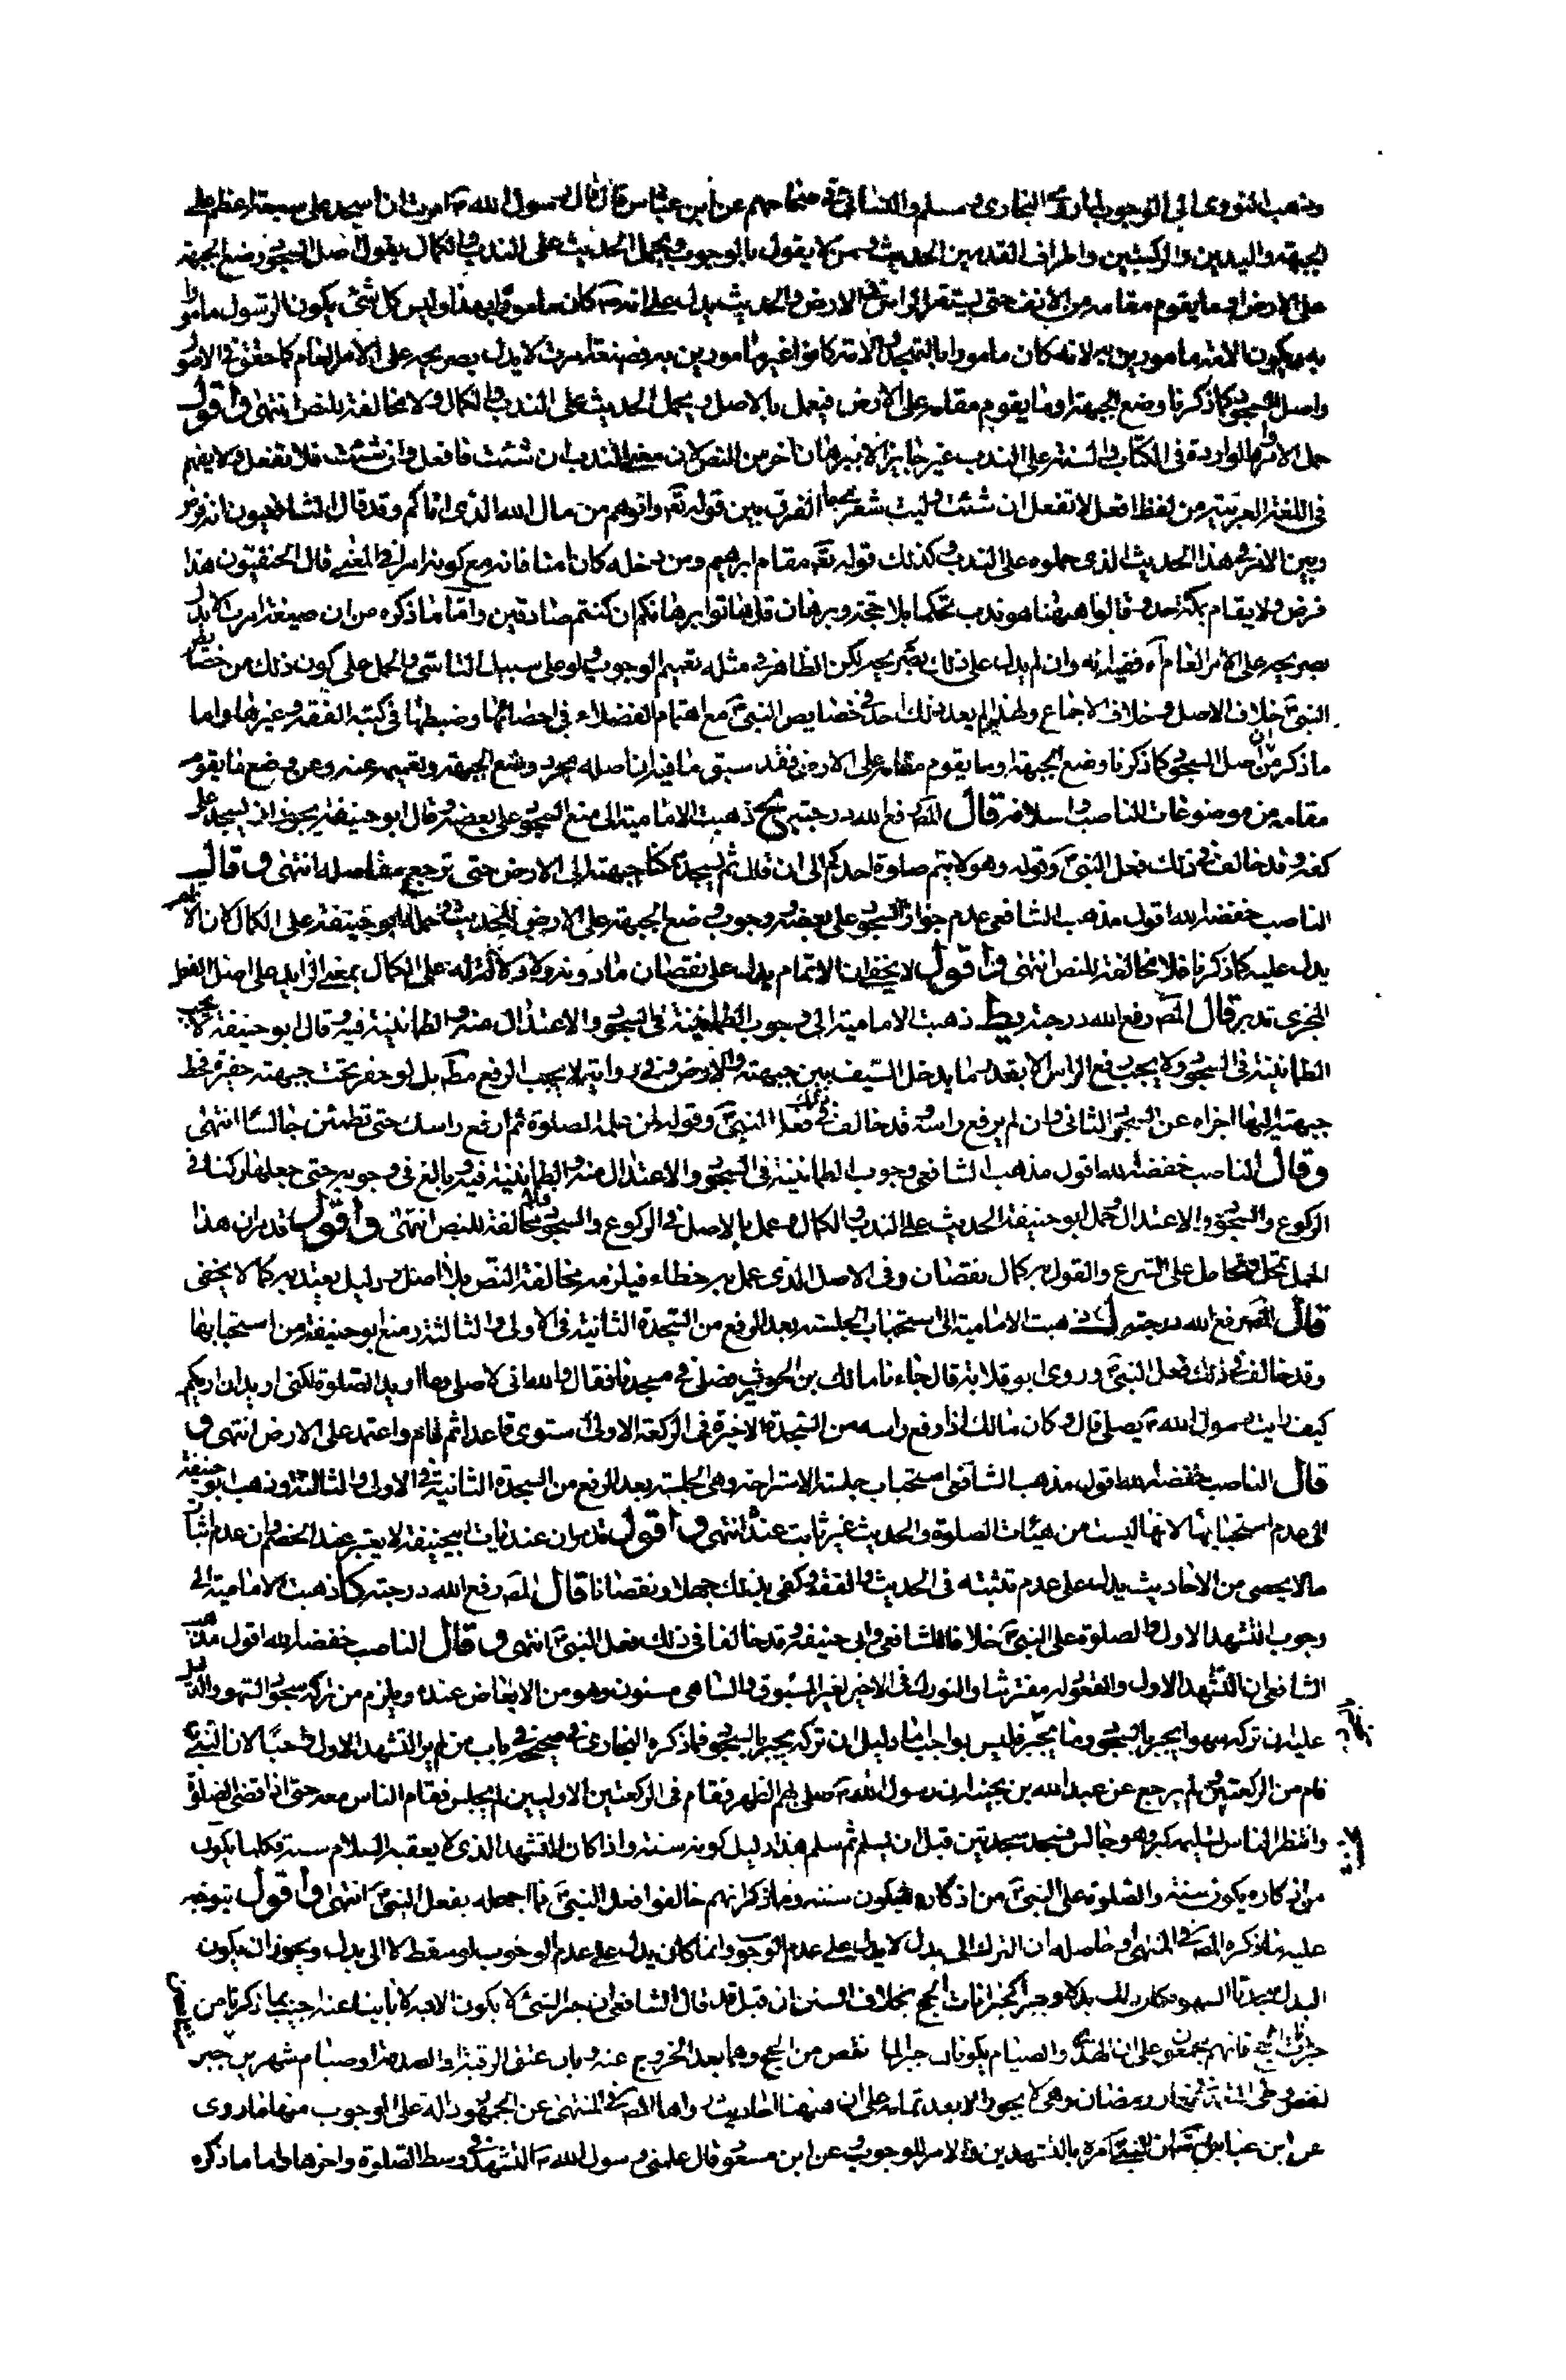 وذهب النووي الى الوجوب لما رواه البخاري ومسلم والنسائي في صحاحهم عن ابن عباس قال قال رسول الله ص امرت ان اسجد على سبعة اعظم على
الجبهة واليدين والركبتين واطراف القدمين الحديث ومن لا يقول بالوجوب يحمل الحديث على الندب والكمال يقول اصل السجود وضع الجبهة
على الارض او ما يقوم مقامه من الانف حتى يستقر الراس على الارض والحديث يدل على انه ص كان مامورا بهذا وليس كل شئ يكون الرسول مامورا
به يكون الامة مامورين به لانه كان مامورا بالتهجد والامة كانوا غير مامورين به فصيغة امرت لا يدل بصريحه على الامر العام كما حقق في الاصول
واصل السجود كما ذكرنا وضع الجبهة او ما يقوم مقامه على الارض فيعمل بالاصل ويحمل الحديث على الندب والكمال ولا مخالفة للنص انتهى واقول
حمل الاوامر الواردة في الكتاب والسنة على الندب غير جايز الا ببرهان آخر من النص لان معنى الندب ان شئت فافعل وان شئت فلا تفعل ولا يفهم
في اللغة العربية من لفظ افعل لا تفعل ان شئت وليت شعري ما الفرق بين قوله تع واتوهم من مال الله الذي اتاكم وقد قال الشافعيون انه فرض
وبين الامر في هذا الحديث الذي حملوه على الندب وكذلك قوله تع مقام ابرهيم ومن دخله كان امنا فانه مع كونه امرا في المعنى قال الحنفيون هذا
فرض ولا يقام بمكة احد وقالوا ههنا هو ندب تحكما بلا حجة وبرهان قل هاتوا برهانكم ان كنتم صادقين واما ما ذكره من ان صيغة امرت لا يدل
بصريحه على الامر العام آه ففيه انه وان لم يدل على ذلك بصريحه لكن الظاهر في مثله تعميم الوجوب ولو على سبيل التاسي والحمل على كون ذلك من خصايص
النبي ص خلاف الاصل وخلاف الاجماع ولهذا لم يعد ذلك احد في خصايص النبي ص مع اهتمام الفضلاء في احصائها وضبطها في كتب الفقه وغيرها واما
ما ذكر من ان اصل السجود كما ذكرنا وضع الجبهة او ما يقوم مقامه على الارض فقد سبق ما فيه ان اصله مجرد وضع الجبهة وتعميمه عنه وعن وضع ما يقوم
مقامه من موضوعات الناصب واسلافه قال المص رفع الله درجته يح ذهبت الامامية الى منع السجود على بعضه وقال ابو حنيفة يجوز ان يسجد على
كفه وقد خالف في ذلك فعل النبي ص وقوله وهو لا يتم صلوة احدكم الى ان قال ثم يسجد ممكنا جبهته الى الارض حتى ترجع مفاصله انتهى وقال
الناصب خفضه الله اقول مذهب الشافعي عدم جواز السجود على بعضه ووجوب وضع الجبهة على الارض للحديث وحمله ابو حنيفة على الكمال كان الامر
يدل عليه كما ذكرنا فلا مخالفة للنص انتهى واقول لا يخفى ان الاتمام يدل على نقصان ما دونه ولا دلالة له على الكمال بمعنى الزايد على اصل الفعل
المجزى تدبر قال المص رفع الله درجته يط ذهبت الامامية الى وجوب الطمانينة في السجود والاعتدال منه والطمانينة فيه وقال ابو حنيفة لا يجب
الطمانينة في السجود ولا يجب رفع الراس الا بقدر ما يدخل السيف بين جبهته والارض وفي رواية لا يجب الرفع مطلقا بل لو حفر تحت جبهته حفيرة فحط
جبهته اليها اجزاه عن السجود الثاني وان لم يرفع راسه وقد خالف في ذلك فعل النبي ص وقوله لمن علمه الصلوة ثم ارفع راسك حتى تطمئن جالسا انتهى
وقال الناصب خفضه الله اقول مذهب الشافعي وجوب الطمانينة في السجود والاعتدال منه والطمانينة فيه وبالغ في وجوبه حتى جعلها ركنا في
الركوع والسجود والاعتدال وحمل ابو حنيفة الحديث على الندب والكمال وعمل بالاصل في الركوع والسجود ولا مخالفة للنص انتهى واقول تدبر ان هذا
الحمل تحمل وتحامل على الشرع والقول به كمال نقصان وفي الاصل الذي عمل به خطاء فيلزمه مخالفة النص بلا اصل ودليل يعتد به كما لا يخفى
قال المص رفع الله درجته ك ذهبت الامامية الى استحباب الجلسة بعد الرفع من السجدة الثانية في الاولى والثالثة ومنع ابو حنيفة من استحبابها
وقد خالف في ذلك فعل النبي ص وروى ابو قلابة قال جاءنا مالك بن الحويرث فصلى في مسجدنا فقال والله اني لاصلى وما اريد الصلوة لكني اريد ان اريكم
كيف رايت رسول الله ص يصلي قال وكان مالك اذا رفع راسه من السجدة الاخيرة في الركعة الاولى استوى قاعدا ثم قام واعتمد على الارض انتهى و
قال الناصب خفضه الله اقول مذهب الشافعي استحباب جلسة الاستراحة وهى الجلسة بعد الرفع من السجدة الثانية في الاولى والثالثة وذهب ابو حنيفة
الى عدم استحبابها لانها ليست من هيئات الصلوة والحديث غير ثابت عنده انتهى واقول تدبر ان عنديات ابيحنيفة لا يعتبر عند الخصم وان عدم اثبات
ما لا يحصى من الاحاديث يدل على عدم تثبته في الحديث والفقه وكفى بذلك جهلا ونقصانا قال المص رفع الله درجته كا ذهبت الامامية الى
وجوب التشهد الاول والصلوة على النبي ص خلافا للشافعي وابي حنيفة وقد خالفا في ذلك فعل النبي ص انتهى وقال الناصب خفضه الله اقول مذهب
الشافعي ان التشهد الاول والقعود له مفترشا والتورك في الاخير لغير المسبوق والساهى مسنون وهو من الابعاض عنده ويلزم من تركه سجود السهو والدليل
عليه ان تركه سهوا يجبر بالسجود وما يجبر فليس بواجب اما دليل ان تركه يجبر بالسجود فما ذكره البخاري في صحيحه في باب من لم ير التشهد الاول واجبا لان النبي ص
قام من الركعتين ولم يرجع عن عبد الله بن بحينة ان رسول الله ص صلى بهم الظهر فقام في الركعتين الاوليين لم يجلس فقام الناس معه حتى اذا قضى الصلوة
وانتظر الناس تسليمه كبر وهو جالس فسجد سجدتين قبل ان يسلم ثم سلم هذا دليل كونه سنة واذا كان التشهد الذي لا يعقبه السلام سنة فكلما يكون
من اذكاره يكون سنة والصلوة على النبي ص من اذكاره فيكون سنة وما ذكر انهم خالفوا فعل النبي ص فما اجهله بفعل النبي ص انتهى واقول يتوجه
عليه ما ذكره المص في المنتهى وحاصله ان الترك الى بدل لا يدل على عدم الوجوب وانما كان يدل على عدم الوجوب لو سقط لا الى بدل ويجوز ان يكون
البدل سجدتا السهو فكان ذلك بدلا وجبرا كجبرانات الحج بخلاف السنن ان قيل قد قال الشافعي ان جبر الشئ لا يكون الا به كاتيناه عنه اجيب بما ذكرنا من
جبرانات الحج فانهم يجمعون على ان الهدي والصيام يكونان جبرا لما نقص من الحج وهما بعد الخروج عنه وبان عتق الرقبة او الصدقة او صيام شهرين جبر
لنقص وطى نهار رمضان وهى لا يجوز الا بعد تمامه على ان ههنا احاديث رواها المص في المنتهى عن الجمهور دالة على الوجوب منها ما روى
عن ابن عباس ان النبي ص امره بالتشهدين والامر للوجوب وعن ابن مسعود قال علمني رسول الله ص التشهد في وسط الصلوة واخرها واما ما ذكره